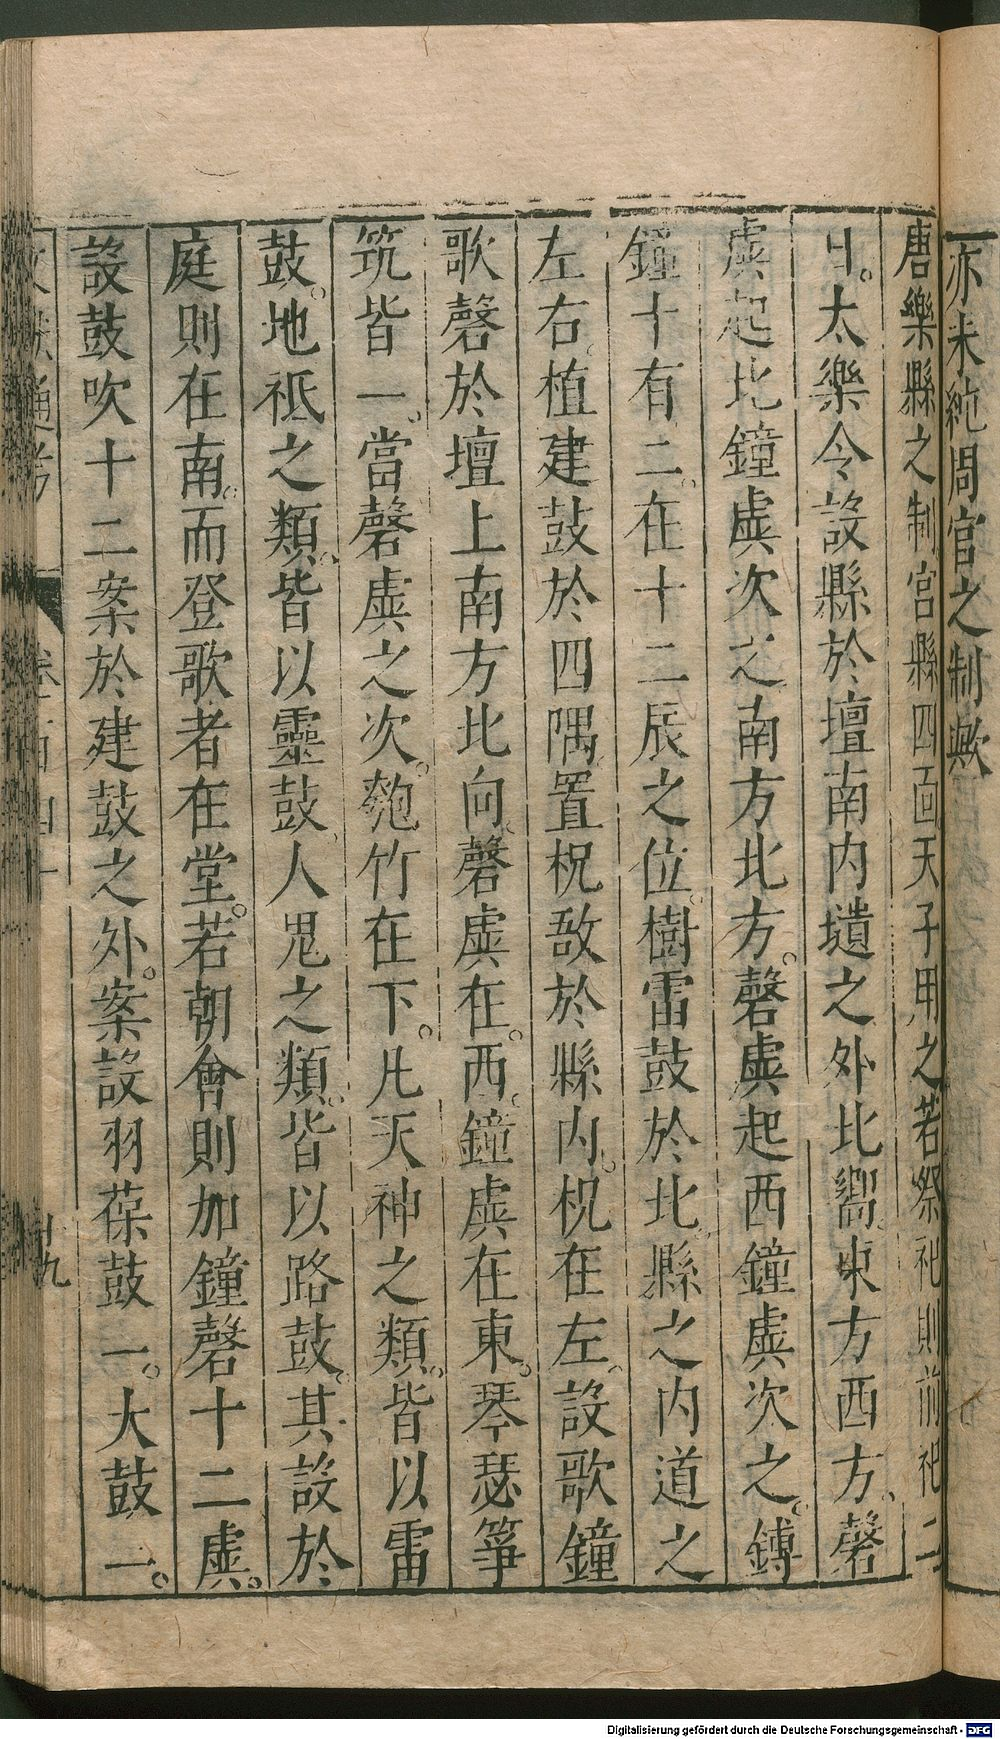 亦未純周官之制歟
唐樂縣之制宮縣四面天子用之若祭祀則前祀二
日太樂令設縣於壇南內壝之外北嚮東方西方磬
虡起北鐘虡次之南方北方磬虡起西鐘虡次之鎛
鐘十有二在十二辰之位樹雷鼓於北縣之內道之
左右植建鼓於四隅置柷敔於縣內柷在左設歌鐘
歌磬於壇上南方北向磬虡在西鐘虡在東琴瑟箏
筑皆一當磬虡之次匏竹在下凡天神之類皆以雷
鼓地祗之類皆以靈鼓人鬼之類皆以路鼓其設於
庭則在南而登歌者在堂若朝會則加鐘磬十二虡
設鼓吹十二案於建鼓之外案設羽葆鼓一大鼓一
文獻通考 卷一百四十 十九
Digitalisierung gefördert durch die Deutsche Forschungsgemeinschaft - DFG